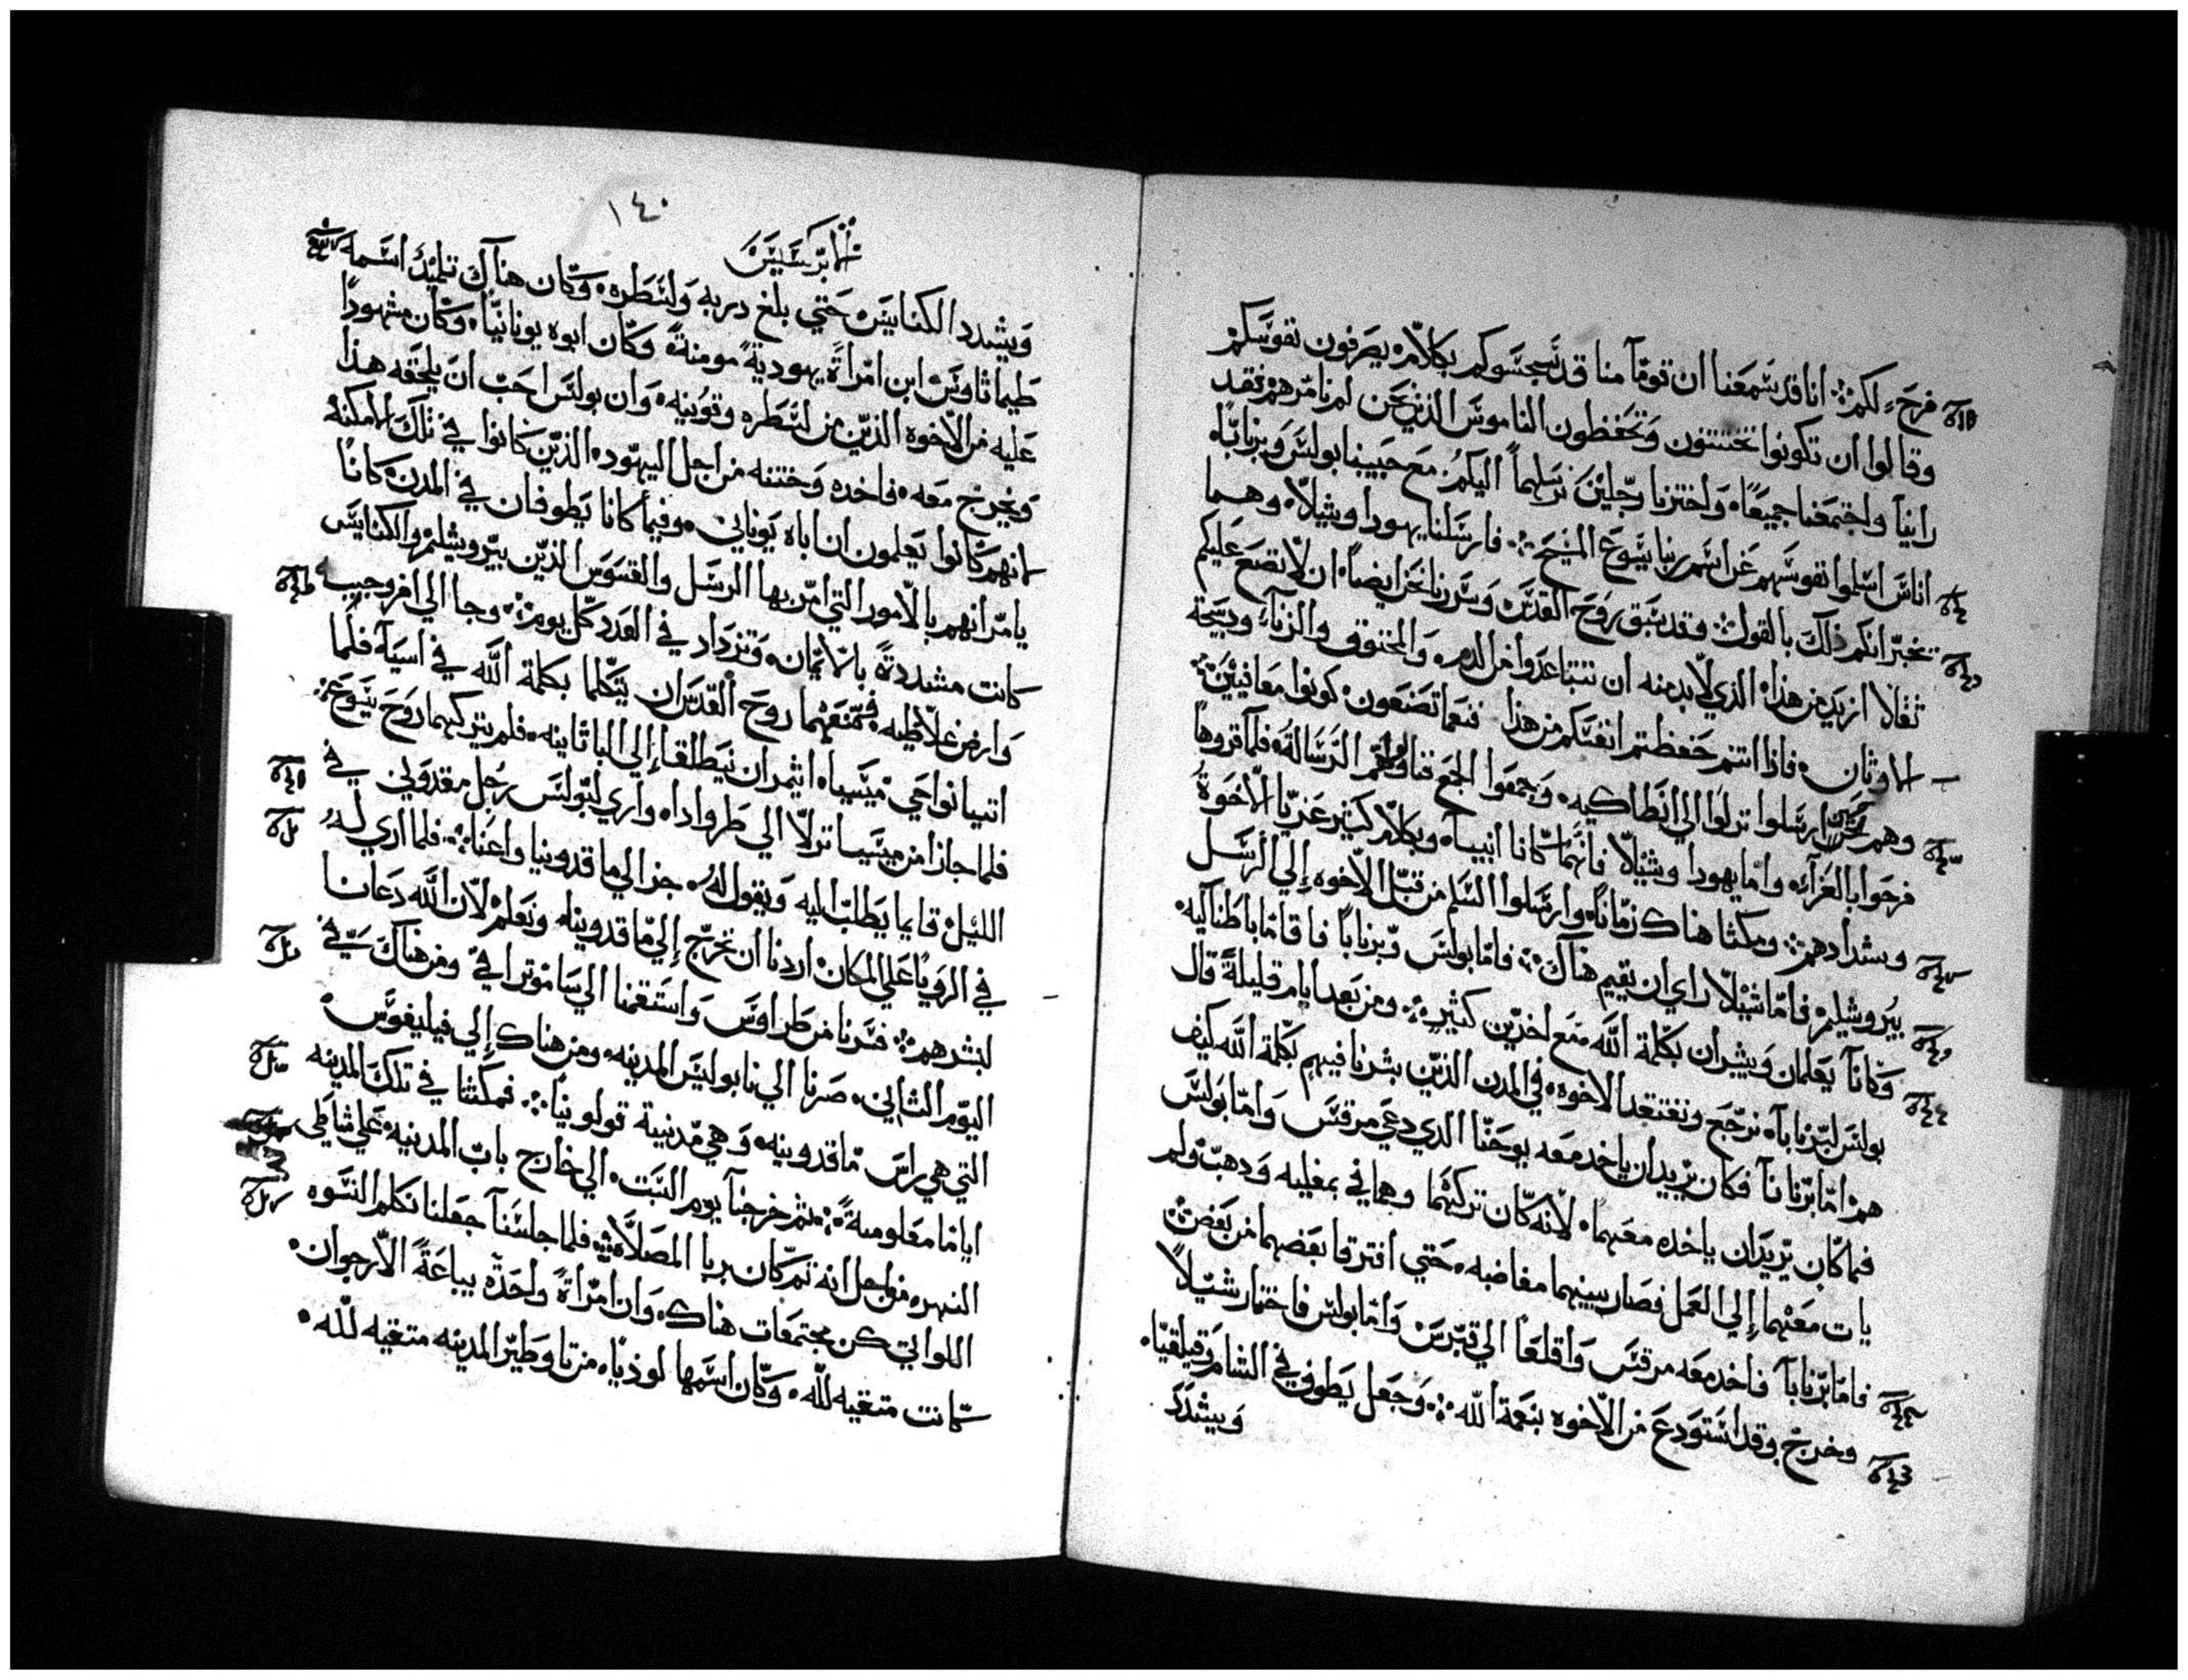 فرح لكم ⁘ انا قد سمعنا ان قوماً منا قد سجسوكم بكلام يصرفون نفوسكم
وقالوا ان تكونوا تختتنون وتحفظون الناموس الذين نحن لم نامرهم فقد
راينا واجتمعنا جميعاً واخترنا رجلين نرسلهما اليكم مع حبيبنا بولس وبرنابا
اناس اسلموا نفوسهم عن اسم ربنا يسوع المسيح ⁘ فارسلنا يهودا وشيلا وهما
يخبرانكم ذلك بالقول ⁘ وقد سبق روح القدس وسررنا نحن ايضاً ان لا نضع عليكم
ثقلا ازيد من هذا الذي لا بد منه ان تتباعدوا من الدم والمخنوق والزنا وذبيحة
الاوثان فاذا انتم حفظتم انفسكم من هذا فنعما تصنعون كونوا معافيين ⁘
وهم حين ارسلوا نزلوا الي انطاكيه وجمعوا الجمع الرسالة فلما قروها
فرحوا بالعزاء واما يهودا وشيلا فانهما كانا انبيا وبكلام كثير عزيا الاخوة
وشدادهم ⁘ ومكثا هناك زماناً وارسلوا السلم من قبل الاخوه إلي الرسل
بيروشليم فاما شيلا راي ان يقيم هناك ⁘ فاما بولس وبرنابا فاقاما باطناكيه
وكانا يعلمان ويبشران بكلمة الله مع اخرين كثير ⁘ ومن بعد ايام قليلة قال
بولس لبرنابا نرجع ونفتقد الاخوه في المدن الذين بشرنا فيهم بكلمة الله كيف
هم اما برنابا فكان يريد ان ياخد معه يوحنا الدي دعي مرقس واما بولس
فما كان يريد ان ياخده معهما لانه كان تركهما وهما في بمفليه ودهب ولم
يات معهما إلي العمل فصار بينهما مغاضبه حتي افترقا بعضهما من بعض ⁘
فاما برنابا فاخد معه مرقس واقلعا الي قبرس واما بولس فاختار شيلا
وخرج وقد استودع من الاخوه بنعمة الله ⁘ وجعل يطوف في الشام وقيلقيا
ويشدد
١٤٠
الابركسيس
ويشدد الكنايس حتي بلغ دربه ولسطره وكان هناك تلميذ اسمه
طيماثاوس ابن امراة يهودية مومنة وكان ابوه يونانياً وكان مشهوداً
عليه من الاخوه الذين من لسطره وقونيه وان بولس احب ان يلحقه هذا
ويخرج معه فاخده وختنه من اجل اليهود الذين كانوا في تلك الامكنه
لانهم كانوا يعلمون ان اباه يوناني وفيما كانا يطوفان في المدن كانا
يامرانهم بالامور التي امر بها الرسل والقسوس الذين بيروشليم والكنايس
كانت مشددة بالايمان وتزداد في العدد كل يوم ⁘ وجا الي افروجيه
وارض غلاطيه فمنعهما روح القدس ان يتكلما بكلمة الله في اسيا فلما
اتيا نواحي ميسيا اثمر ان ينطلقا إلي الباثانيه فلم يتركهما روح يسوع ⁘
فلما جازا من ميسيا نزلا الي طرواداه واري لبولس رجل مقدوني في
الليل قايما يطلب اليه ويقول له جز الي ماقدونيا واعنا ⁘ فلما اري له
في الرويا علي المكان اردنا ان نخرج إلي ماقدونيا ونعلم لان الله دعانا
لنبشرهم ⁘ فسرنا من طراوس واستقمنا الي ساموتراقي ومن هناك في
اليوم الثاني صرنا الي نابوليس المدينه ومن هناك إلي فيليفوس
التي هي راس ماقدونيه وهي مدينة قولونيا ⁘ فمكثنا في تلك المدينه
اياما معلومة ⁘ ثم خرجنا يوم السبت الي خارج باب المدينه علي شاطي
النهر من اجل انه ثم كان يريا المصلاه ⁘ فلما جلسنا جعلنا نكلم النسوه
اللواتي كن مجتمعات هناك وان امراة واحدة بياعة الارجوان
كانت متقيه لله وكان اسمها لوذيا من تاوطير المدينه متقيه لله